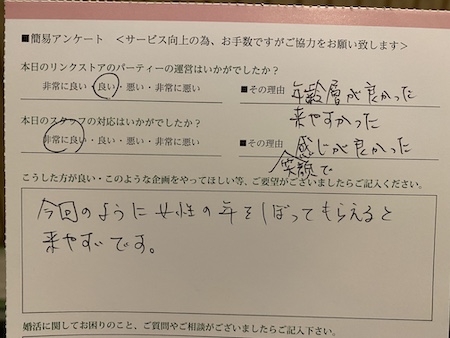 ■簡易アンケート ＜サービス向上の為、お手数ですがご協力をお願い致します＞
本日のリンクストアのパーティーの運営はいかがでしたか？
非常に良い・良い・悪い・非常に悪い ■その理由 年齢層が良かった
来やすかった
本日のスタッフの対応はいかがでしたか？
非常に良い・良い・悪い・非常に悪い ■その理由 感じが良かった
笑顔で
こうした方が良い・このような企画をやってほしい等、ご要望がございましたらご記入ください。
今回のように女性の年をしぼってもらえると
来やすいです。
婚活に関してお困りのこと、ご質問やご相談がございましたらご記入下さい。